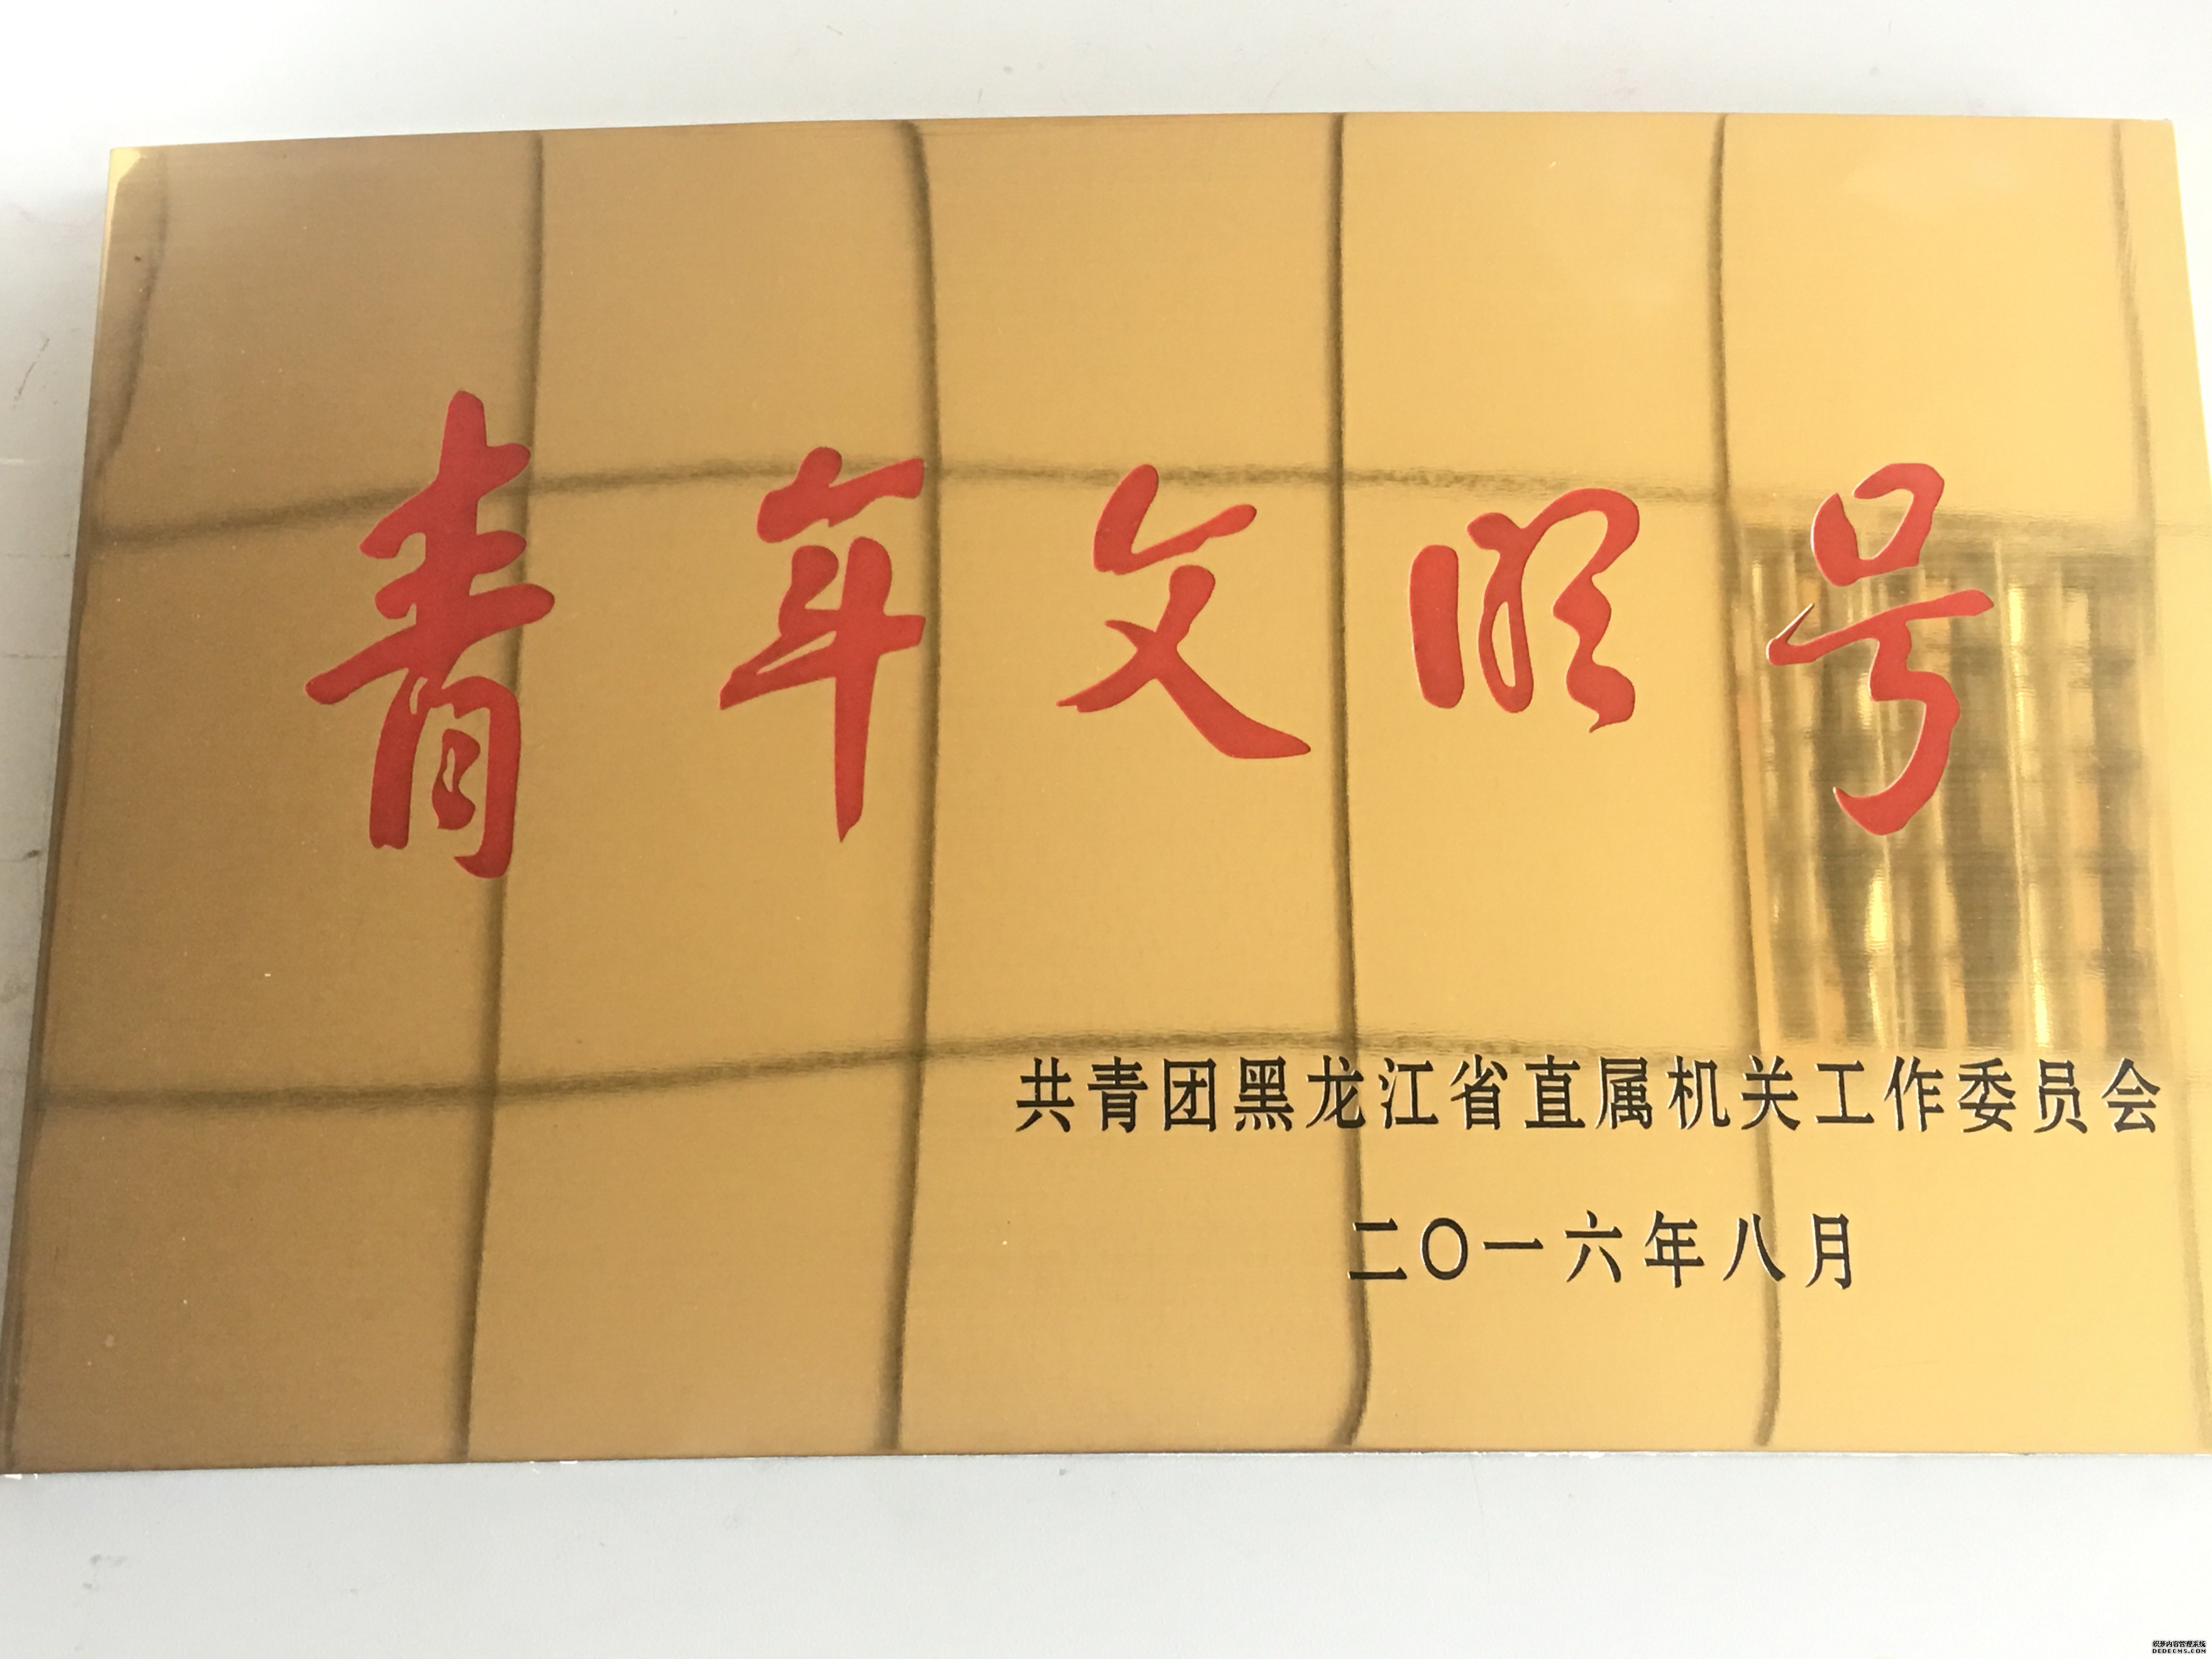 青年文明号
共青团黑龙江省直属机关工作委员会
二〇一六年八月
织梦内容管理系统
DEDECMS.COM